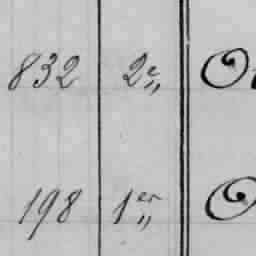 832 2e„ O
198 1er„ O